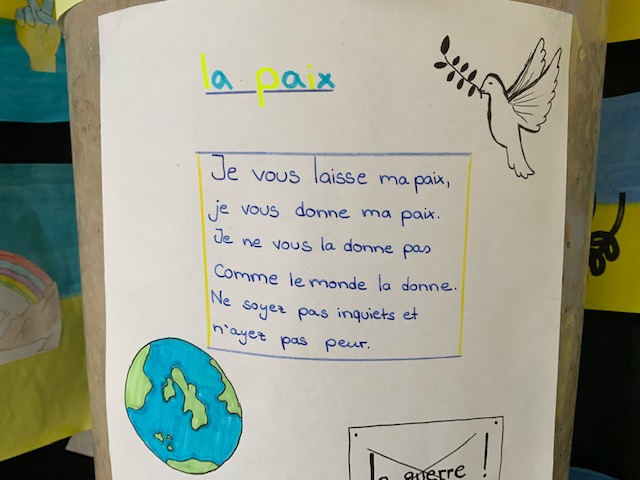 la paix
Je vous laisse ma paix,
je vous donne ma paix.
Je ne vous la donne pas
Comme le monde la donne.
Ne soyez pas inquiets et
n'ayez pas peur.
la guerre !